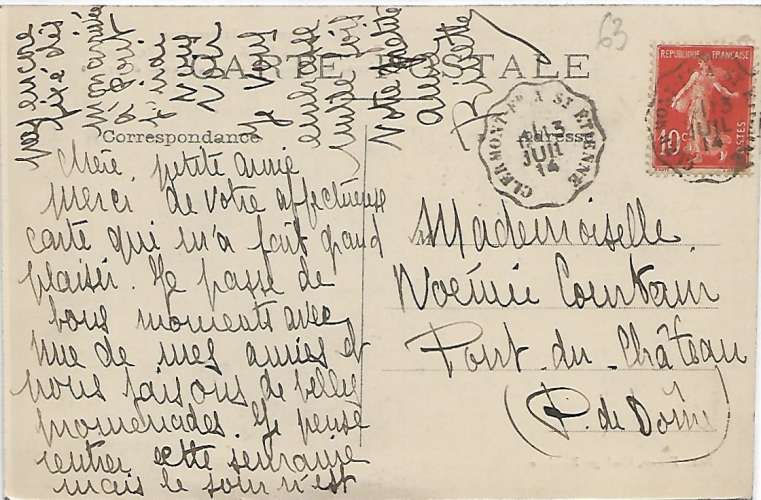 63
CARTE POSTALE
Correspondance
Adresse
RÉPUBLIQUE FRANÇAISE
10c POSTES
CLERMONT-FD A ST ETIENNE
13
JUIL
14
Chère petite amie
Merci de votre affectueuse
carte qui m'a fait grand
plaisir. Je passe de
bons moments avec
une de mes amies et
nous faisons de belles
promenades. Je pense
rentrer cette semaine
mais le jour n'est
pas encore
fixé dès
mon arrivée
à Pont
j'irai
vous
voir
Je vous
embrasse
Votre petite
amie
Mademoiselle
Noémie Courtain
Pont-du-Château
(P. de Dôme)